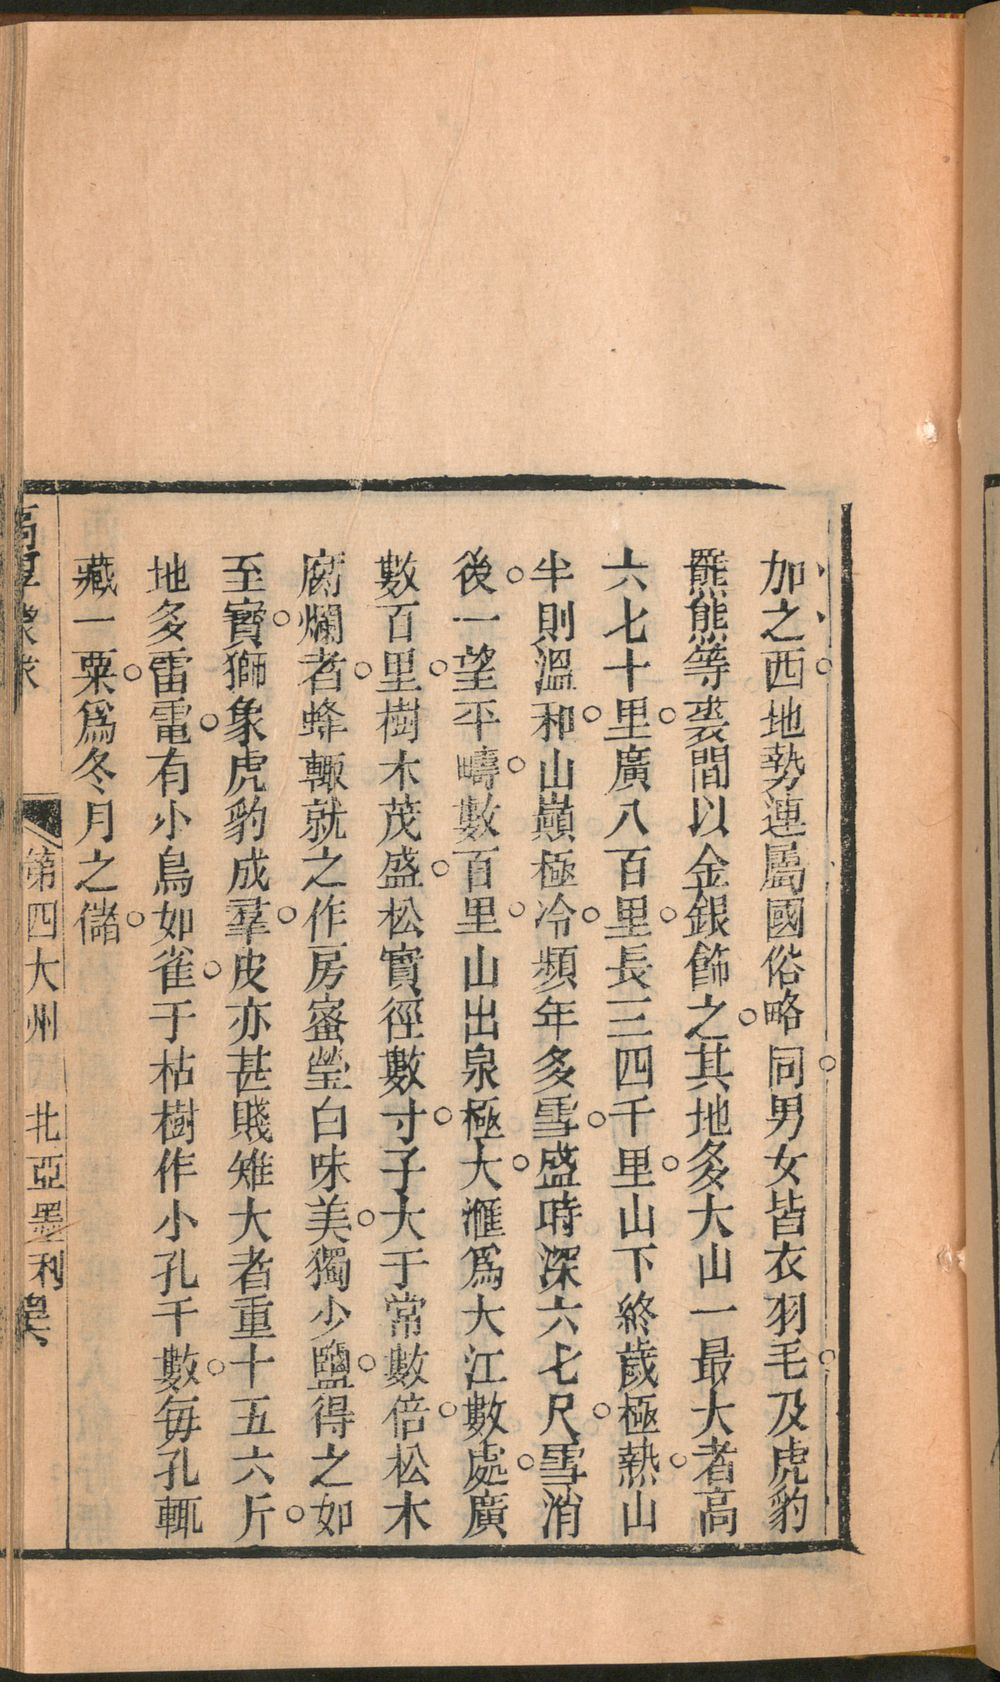 加之西地勢連屬國俗略同男女皆衣羽毛及虎豹
羆熊等裘間以金銀飾之其地多大山一最大者高
六七十里廣八百里長三四千里山下終歲極熱山
半則溫和山巔極冷頻年多雪盛時深六七尺雪消
後一望平疇數百里山出泉極大滙爲大江數處廣
數百里樹木茂盛松實徑數寸子大于常數倍松木
腐爛者蜂輒就之作房蜜瑩白味美獨少鹽得之如
至寶獅象虎豹成羣皮亦甚賤雉大者重十五六斤
地多雷電有小鳥如雀于枯樹作小孔千數每孔輒
藏一粟爲冬月之儲
高厚蒙求
第四大州 北亞墨利